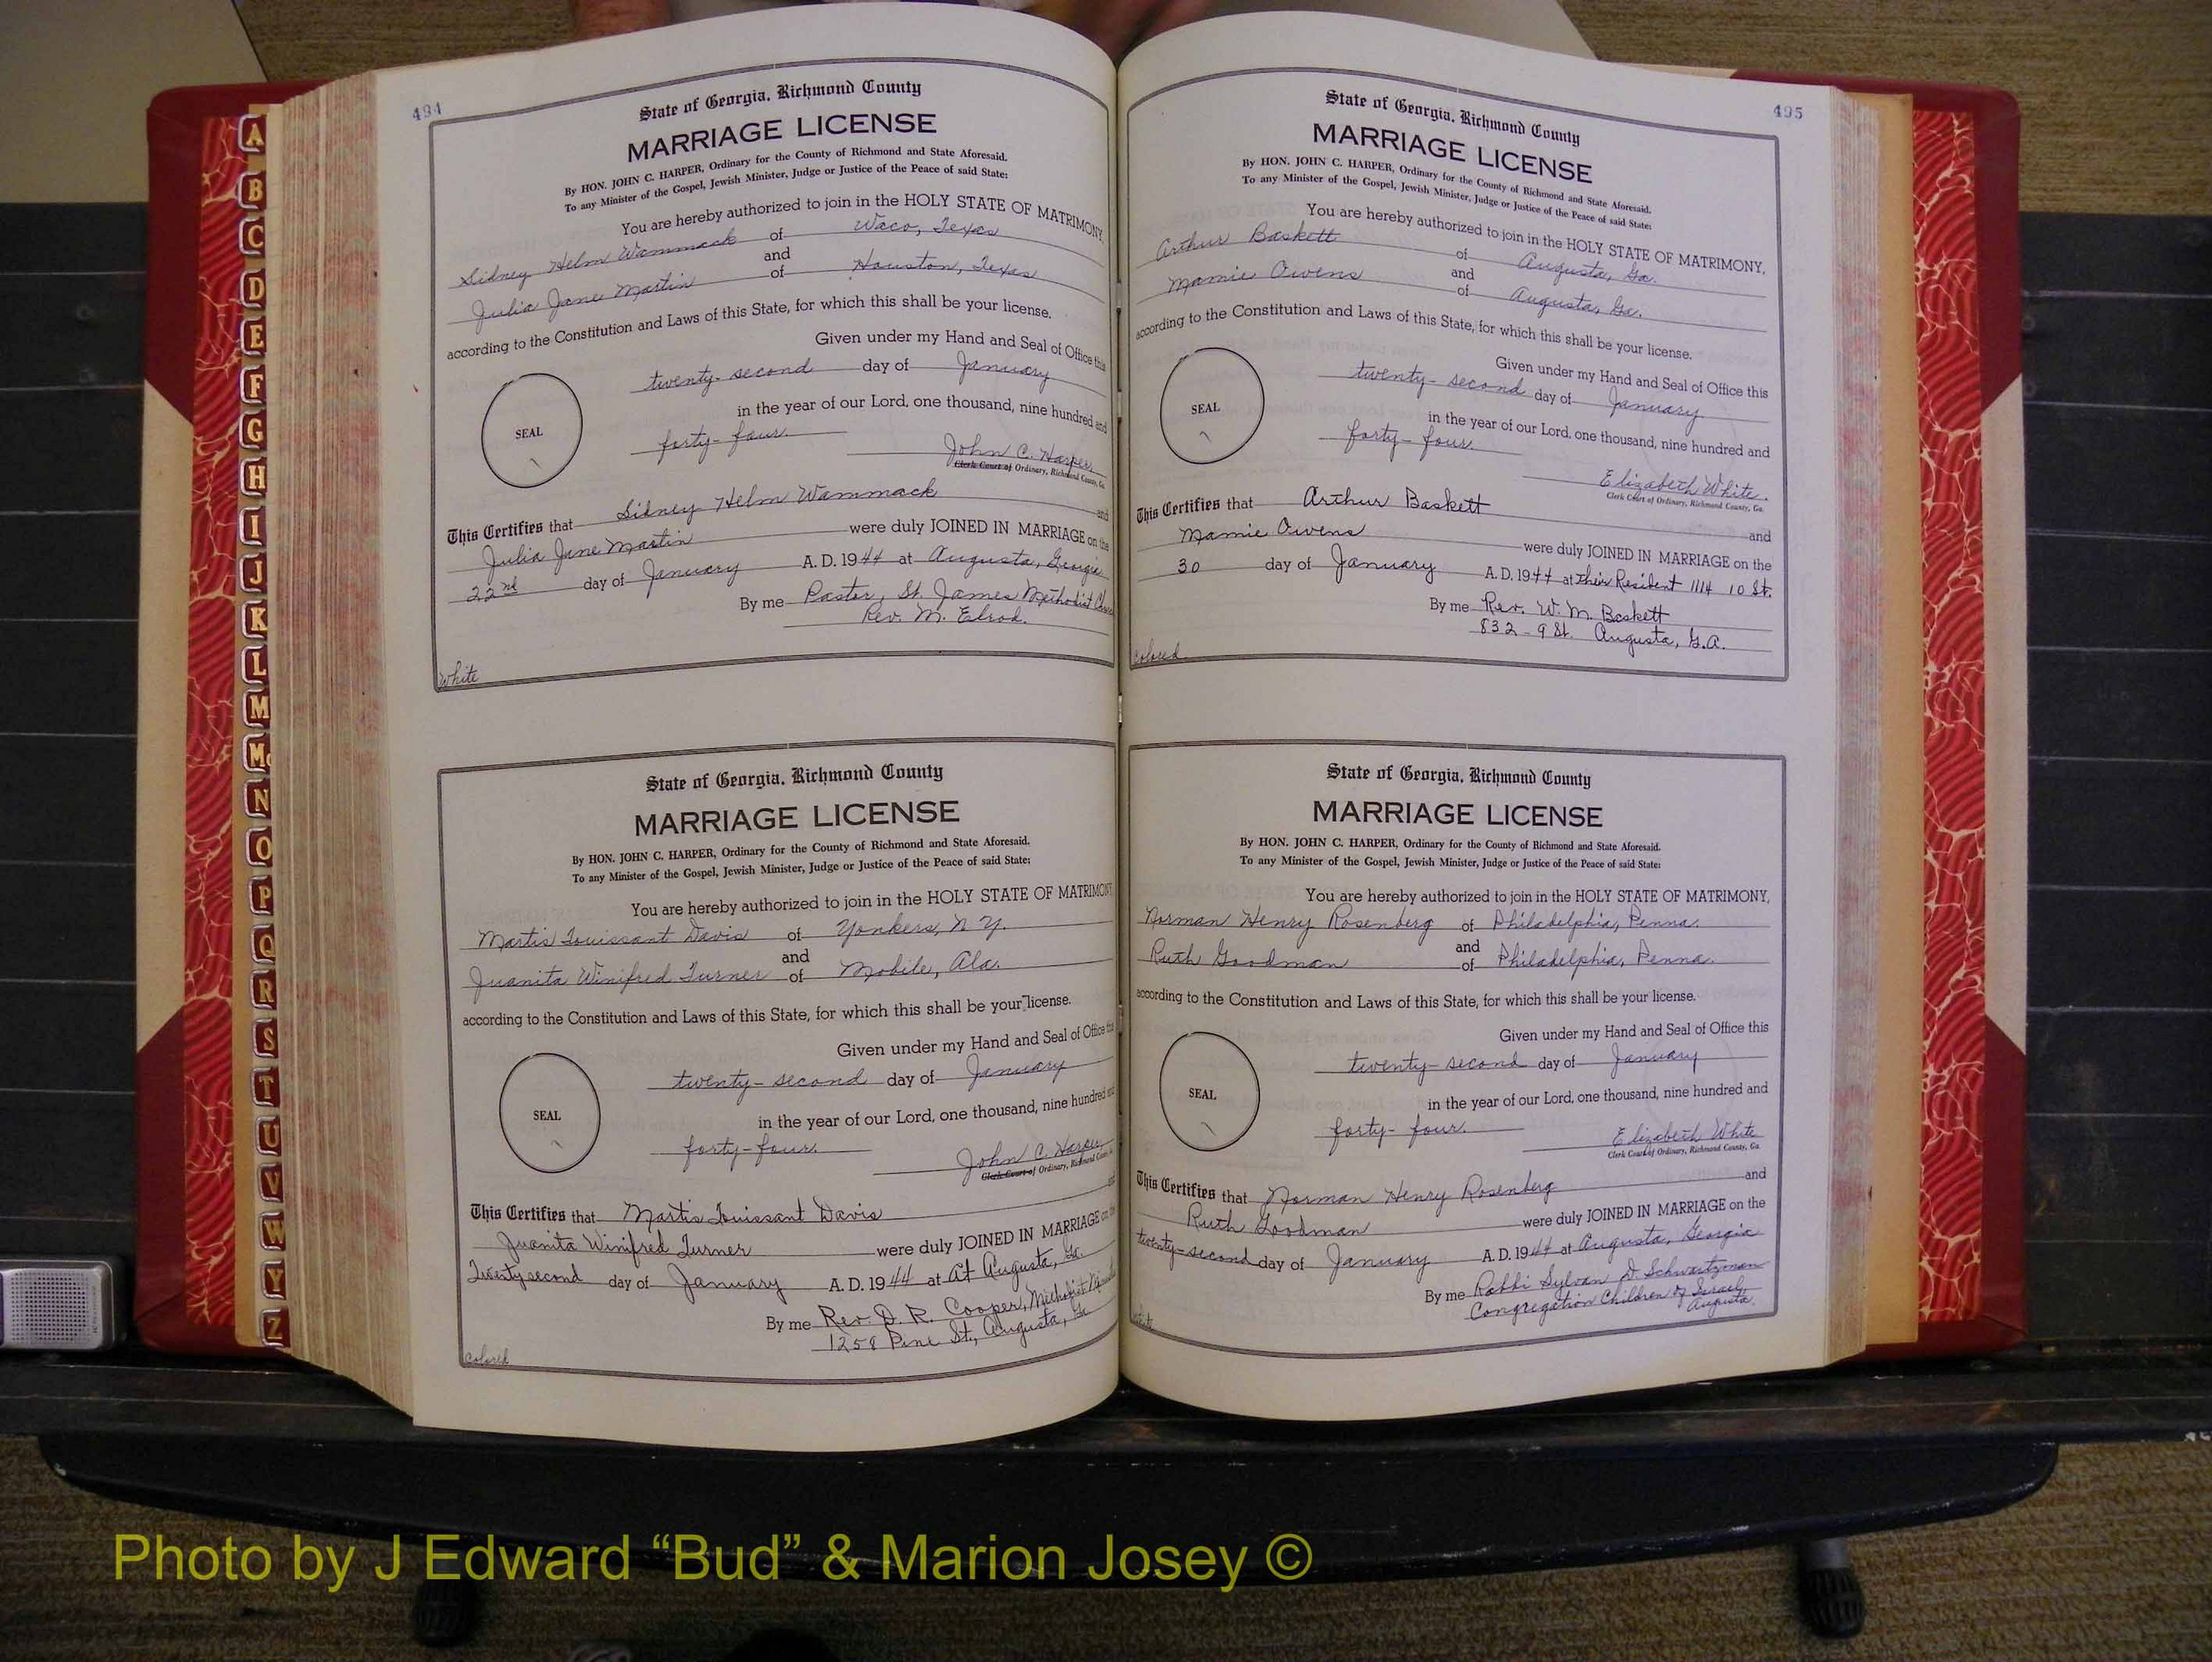 494
State of Georgia, Richmond County
MARRIAGE LICENSE
By HON. JOHN C. HARPER, Ordinary for the County of Richmond and State Aforesaid.
To any Minister of the Gospel, Jewish Minister, Judge or Justice of the Peace of said State:
You are hereby authorized to join in the HOLY STATE OF MATRIMONY,
Sidney Helm Wammack of Waco, Texas
and
Julia Jane Martin of Houston, Texas
according to the Constitution and Laws of this State, for which this shall be your license.
Given under my Hand and Seal of Office this
twenty-second day of January
in the year of our Lord, one thousand, nine hundred and
forty-four.
SEAL
John C. Harper
Clerk Court of Ordinary, Richmond County, Ga.
This Certifies that Sidney Helm Wammack and
Julia Jane Martin were duly JOINED IN MARRIAGE on the
22nd day of January A. D. 1944 at Augusta, Georgia
By me Pastor, St. James Methodist
Rev. M. Elrod.
White
State of Georgia, Richmond County
MARRIAGE LICENSE
By HON. JOHN C. HARPER, Ordinary for the County of Richmond and State Aforesaid.
To any Minister of the Gospel, Jewish Minister, Judge or Justice of the Peace of said State:
You are hereby authorized to join in the HOLY STATE OF MATRIMONY
Martis Touissant Davis of Yonkers, N.Y.
and
Juanita Winifred Turner of Mobile, Ala.
according to the Constitution and Laws of this State, for which this shall be your license.
Given under my Hand and Seal of Office this
twenty-second day of January
in the year of our Lord, one thousand, nine hundred and
forty-four.
SEAL
John C. Harper
Clerk Court of Ordinary, Richmond County
This Certifies that Martis Touissant Davis and
Juanita Winifred Turner were duly JOINED IN MARRIAGE on the
Twenty second day of January A. D. 1944 at At Augusta, Ga.
By me Rev. D. R. Cooper, Methodist
1258 Pine St., Augusta, Ga
Colored
495
State of Georgia, Richmond County
MARRIAGE LICENSE
By HON. JOHN C. HARPER, Ordinary for the County of Richmond and State Aforesaid.
To any Minister of the Gospel, Jewish Minister, Judge or Justice of the Peace of said State:
You are hereby authorized to join in the HOLY STATE OF MATRIMONY,
Arthur Baskett of Augusta, Ga.
and
Mamie Owens of Augusta, Ga.
according to the Constitution and Laws of this State, for which this shall be your license.
Given under my Hand and Seal of Office this
twenty-second day of January
in the year of our Lord, one thousand, nine hundred and
forty-four.
SEAL
Elizabeth White.
Clerk Court of Ordinary, Richmond County, Ga.
This Certifies that Arthur Baskett and
Mamie Owens were duly JOINED IN MARRIAGE on the
30 day of January A. D. 1944 at their Resident 1114 10 St.
By me Rev. W. M. Baskett
832 - 9 St. Augusta, G.A.
Colored
State of Georgia, Richmond County
MARRIAGE LICENSE
By HON. JOHN C. HARPER, Ordinary for the County of Richmond and State Aforesaid.
To any Minister of the Gospel, Jewish Minister, Judge or Justice of the Peace of said State:
You are hereby authorized to join in the HOLY STATE OF MATRIMONY,
Norman Henry Rosenberg of Philadelphia, Penna.
and
Ruth Goodman of Philadelphia, Penna.
according to the Constitution and Laws of this State, for which this shall be your license.
Given under my Hand and Seal of Office this
twenty-second day of January
in the year of our Lord, one thousand, nine hundred and
forty-four.
SEAL
Elizabeth White
Clerk Court of Ordinary, Richmond County, Ga.
This Certifies that Norman Henry Rosenberg and
Ruth Goodman were duly JOINED IN MARRIAGE on the
twenty-second day of January A. D. 1944 at Augusta, Georgia
By me Rabbi Sylvan D. Schwartzman
Congregation Children of Israel,
Augusta.
White
A
B
C
D
E
F
G
H
I
J
K
L
M
Mc
N
O
P
Q
R
S
T
U
V
W
Y
Z
Photo by J Edward “Bud” & Marion Josey ©